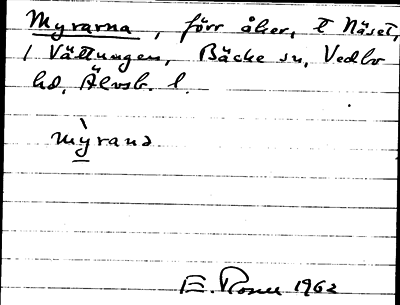 Myrarna, förr åker, t Näset,
1 Vättungen, Bäcke sn, Vedbo
hd, Älvsb. l.
mỳrana
E. Rosell 1962